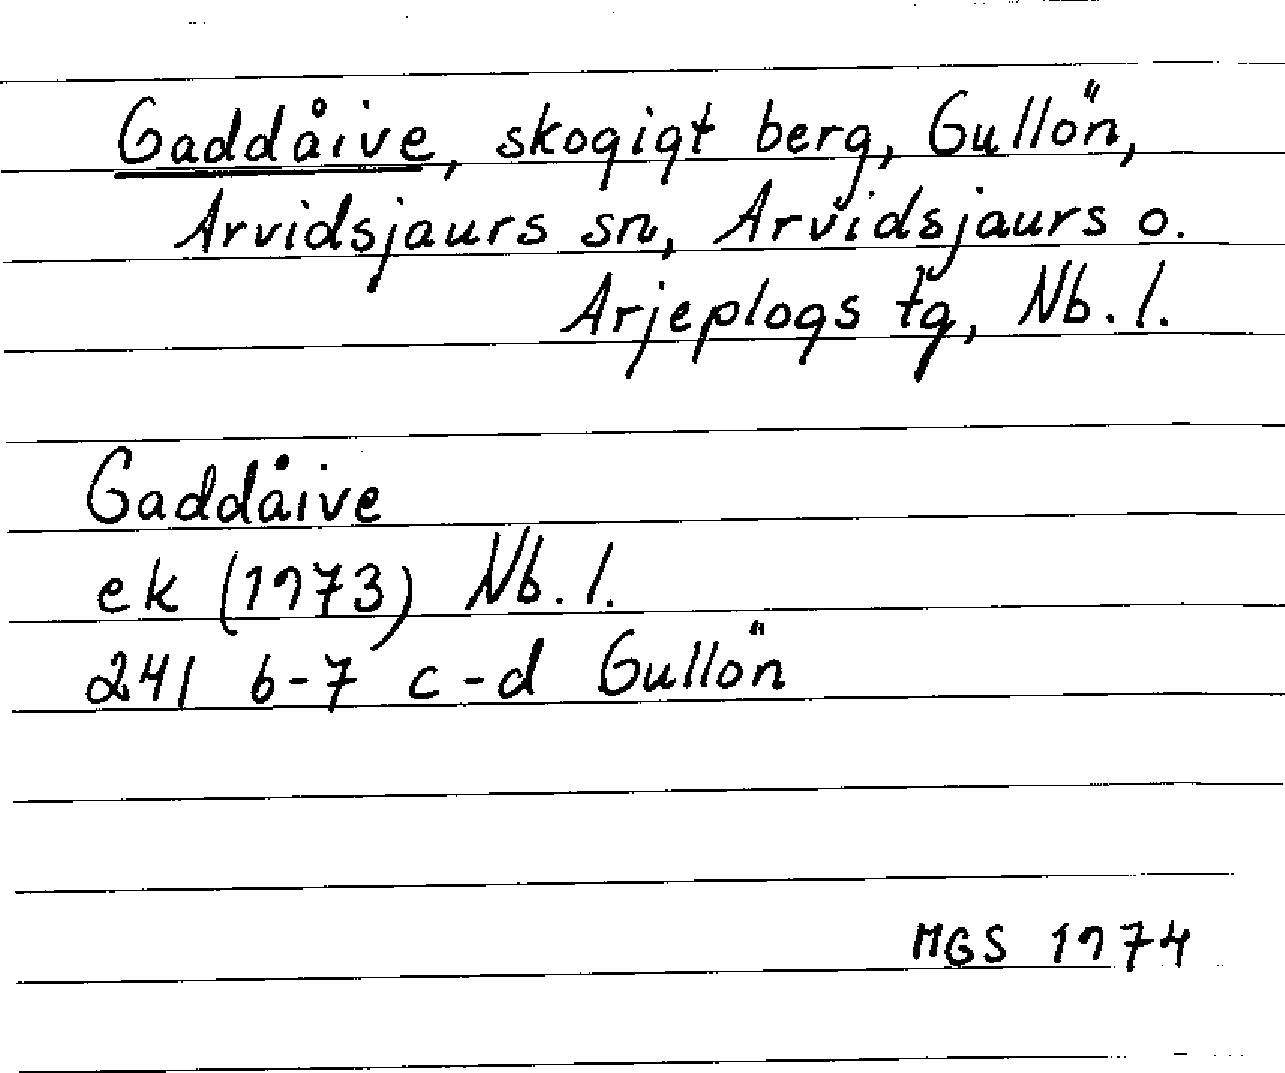 Gaddåive, skogigt berg, Gullön,
Arvidsjaurs sn, Arvidsjaurs o.
Arjeplogs tg, Nb. l.
Gaddåive
ek (1973) Nb. l.
241 6-7 c-d Gullön
MGS 1974